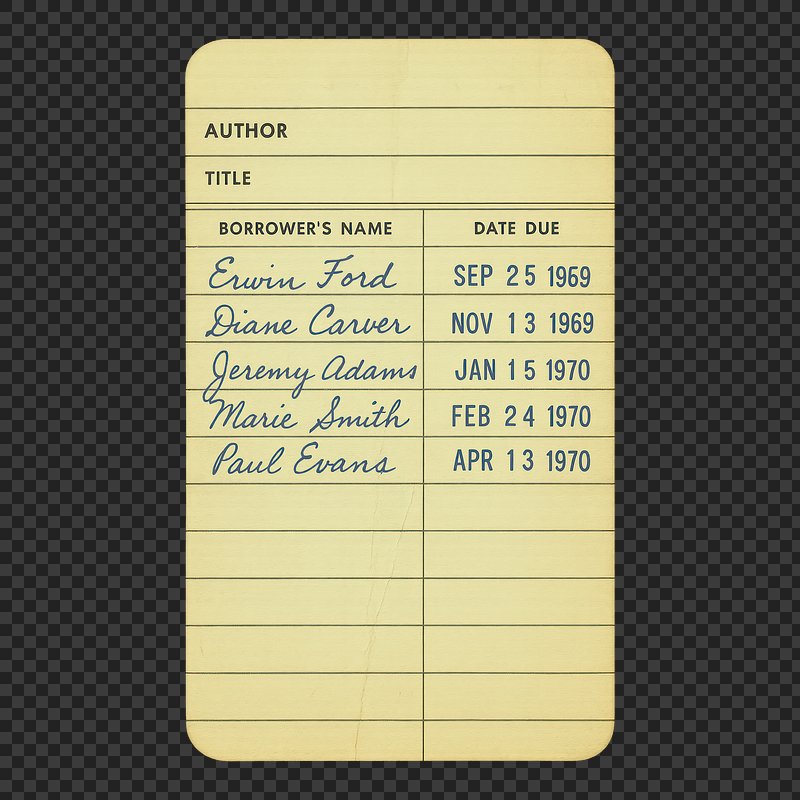 AUTHOR
TITLE
BORROWER'S NAME DATE DUE
Erwin Ford SEP 25 1969
Diane Carver NOV 13 1969
Jeremy Adams JAN 15 1970
Marie Smith FEB 24 1970
Paul Evans APR 13 1970